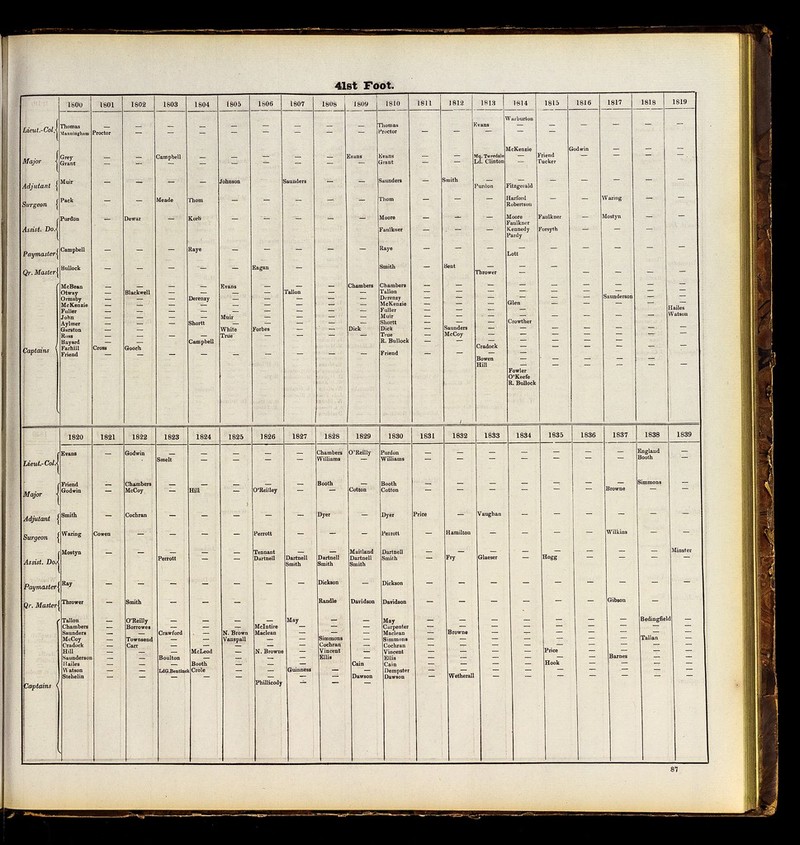 41st Foot.
1800 1801 1802 1803 1804 1805 1806 1807 1808 1809 1810 1811 1812 1813 1814 1815 1816 1817 1818 1819
Warburton
Lieut.-Col. Thomas — — — — — — — — — Thomas Evans — — — — —
Manningham Proctor — — — — — — — — Proctor — — — —
McKenzie Godwin
Major Grey — — Campbell — — — — — Evans Evans — — Mq. Tweedale — Friend — — —
Grant — — — — — — — — — Grant — — Ld. Clinton — Tucker
Adjutant Muir — — — — Johnson — Saunders — — Saunders — Smith — — — — — —
Purdon Fitzgerald
Surgeon Pack — — Meade Thom — — — — — Thom — — — Harford — — Waring — —
Robertson
Assist. Do. Purdon — Dewar — Korb — — — — — Moore — — — Moore Faulkner — Mostyn — —
Faulkner
Faulkner Kennedy Forsyth
Pardy
Paymaster Campbell — — — Raye — — — — — Raye — — — — — — — — —
Lott
Qr. Master Bullock — — — — — Eagan — — — Smith — Bent — — —
Thrower — — — — — —
Captains McBean — — — — Evans — — — Chambers Chambers
Otway — Blackwell — — — — Tallon — — Tallon
Ormsby — — — Derenzy — — — — — Derenzy Saunderson
McKenzie — — — — — — — — — McKenzie Glen
Fuller — — — — — — — — — Fuller Hailes
John — — — — Muir — — — — Muir Watson
Aylmer — — — Shortt — — — — — Shortt Crowther
Gerston — — — — White Forbes — — Dick Dick — Saunders
Ross — — — — True — — — — True — McCoy
Bayard — — — Campbell — — — — — R. Bullock
Farhill Cross Gooch Cradock
Friend Friend
Bowen
Hill
Fowler
O'Keefe
R. Bullock
1820 1821 1822 1823 1824 1825 1826 1827 1828 1829 1830 1831 1832 1833 1834 1835 1836 1837 1838 1839
Lieut.-Col. Evans — Godwin — — — — — Chambers O'Reilly Purdon — — — — — — — England —
Smelt — — — — Williams — Williams — — — — — — — Booth —
Major Friend — Chambers — — — — — Booth — Booth — — — — — — — Simmons —
Godwin — McCoy — Hill — O'Reilley — — Cotton Cotton — — — — — — Browne — —
Adjutant Smith — Cochran — — — — — Dyer — Dyer Price — Vaughan — — — — — —
Surgeon Waring Cowen — — — — Perrott — — — Perrott — Hamilton — — — — Wilkins — —
Assist. Do. Mostyn — — — — — Tennant — — Maitland Dartnell — — — — — — — — Minster
Perrott — — Dartnell Dartnell Dartnell Dartnell Smith — Fry Glaeser — Hogg — — — —
Smith Smith Smith
Paymaster Ray — — — — — — — Dickson — Dickson — — — — — — — — —
Qr. Master Thrower — Smith — — — — — Randle Davidson Davidson — — — — — — Gibson — —
Captains Tallon — O'Reilly — — — — May — — May — — — — — — — Bedingfield
Chambers — Borrowes — — — McIntire — — — Carpenter
Saunders — — Crawford — N. Brown Maclean — — — Maclean — Browne
McCoy — Townsend — — Vanspall — — Simmons — Simmons Tallan
Cradock — Carr — — — — — Cochran — Cochran
Hill — — — McLeod — N. Browne — Vincent — Vincent Price
Saunderson — — Boulton — — — — Ellis — Ellis Barnes
Hailes — — — Booth — — — — Cain Cain Hook
Watson — — Ld G. Bentinck Crole — — Guinness — — Dempster
Stehelin — — — — — — — — Dawson Dawson — Wetherall
Phillicody — — —
87